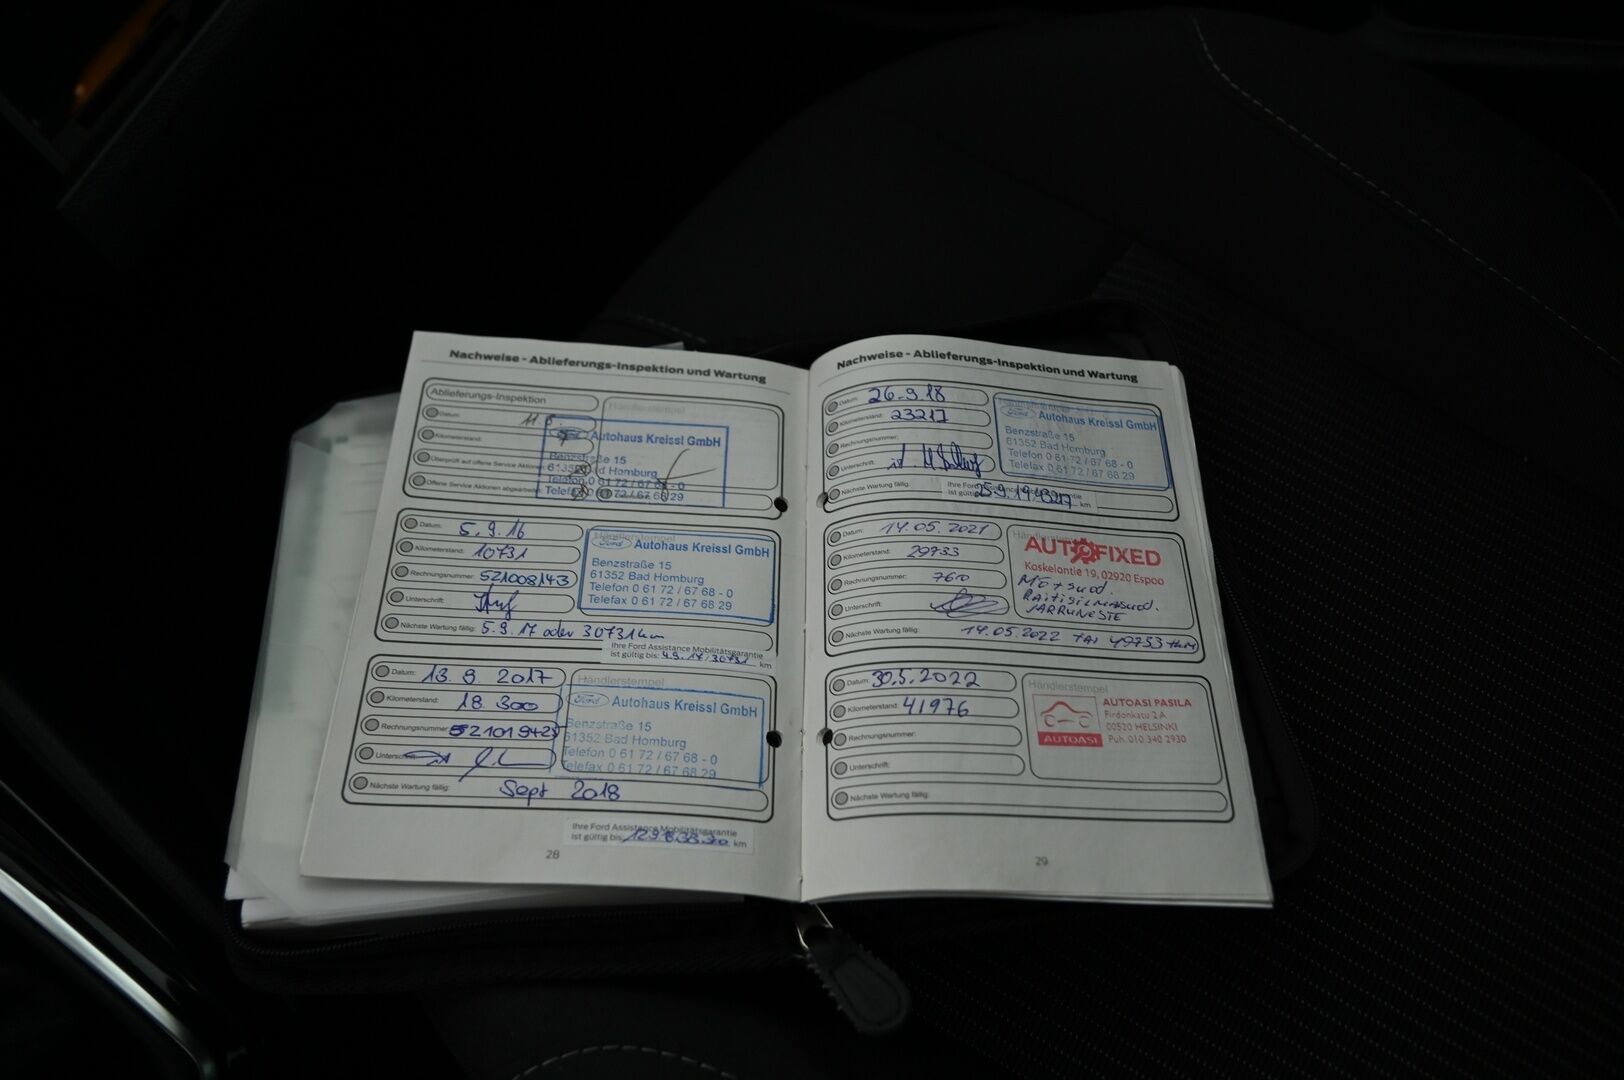 Nachweise - Ablieferungs-Inspektion und Wartung
Ablieferungs-Inspektion
Händlerstempel
Datum: 11.5.
Kilometerstand:
Überprüft auf offene Service Aktionen
Offene Service Aktionen abgearbeitet
Autohaus Kreissl GmbH
Benzstraße 15
61352 Bad Homburg
Telefon 0 61 72 / 67 68 - 0
Telefax 0 61 72 / 67 68 29
Datum: 5.9.16
Kilometerstand: 10731
Rechnungsnummer: 521008143
Unterschrift:
Nächste Wartung fällig: 5.9.17 oder 30731 km
Händlerstempel
Ford Autohaus Kreissl GmbH
Benzstraße 15
61352 Bad Homburg
Telefon 0 61 72 / 67 68 - 0
Telefax 0 61 72 / 67 68 29
Ihre Ford Assistance Mobilitätsgarantie
ist gültig bis: 4.9.17/30731 km
Datum: 13.9.2017
Kilometerstand: 18.300
Rechnungsnummer: 521019425
Unterschrift:
Nächste Wartung fällig: Sept 2018
Händlerstempel
Ford Autohaus Kreissl GmbH
Benzstraße 15
61352 Bad Homburg
Telefon 0 61 72 / 67 68 - 0
Telefax 0 61 72 / 67 68 29
Ihre Ford Assistance Mobilitätsgarantie
ist gültig bis: km
28
Nachweise - Ablieferungs-Inspektion und Wartung
Datum: 26.9.18
Kilometerstand: 23217
Rechnungsnummer:
Unterschrift:
Nächste Wartung fällig:
Ford Autohaus Kreissl GmbH
Benzstraße 15
61352 Bad Homburg
Telefon 0 61 72 / 67 68 - 0
Telefax 0 61 72 / 67 68 29
Ihre Ford Assistance Mobilitätsgarantie
ist gültig bis: 25.9.19/43217 km
Datum: 14.05.2021
Kilometerstand: 29733
Rechnungsnummer: 7610
Unterschrift:
Nächste Wartung fällig: 14.05.2022 TAI 49733 tkm
Händlerstempel
AUTOFIXED
Koskelontie 19, 02920 Espoo
MÖ+suod.
Raitisilmasuod.
JARRUNESTE
Datum: 30.5.2022
Kilometerstand: 41976
Rechnungsnummer:
Unterschrift:
Nächste Wartung fällig:
Händlerstempel
AUTOASI
AUTOASI PASILA
Firdonkatu 2 A
00520 HELSINKI
Puh. 010 340 2930
29